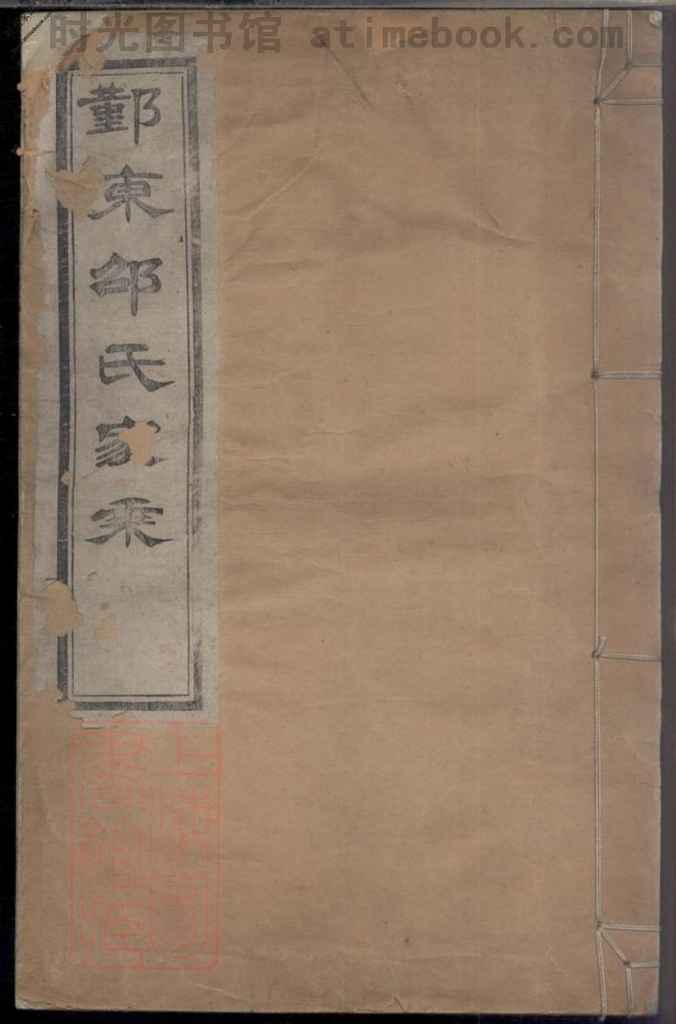 时光图书馆 atimebook.com
鄞東邵氏家乘